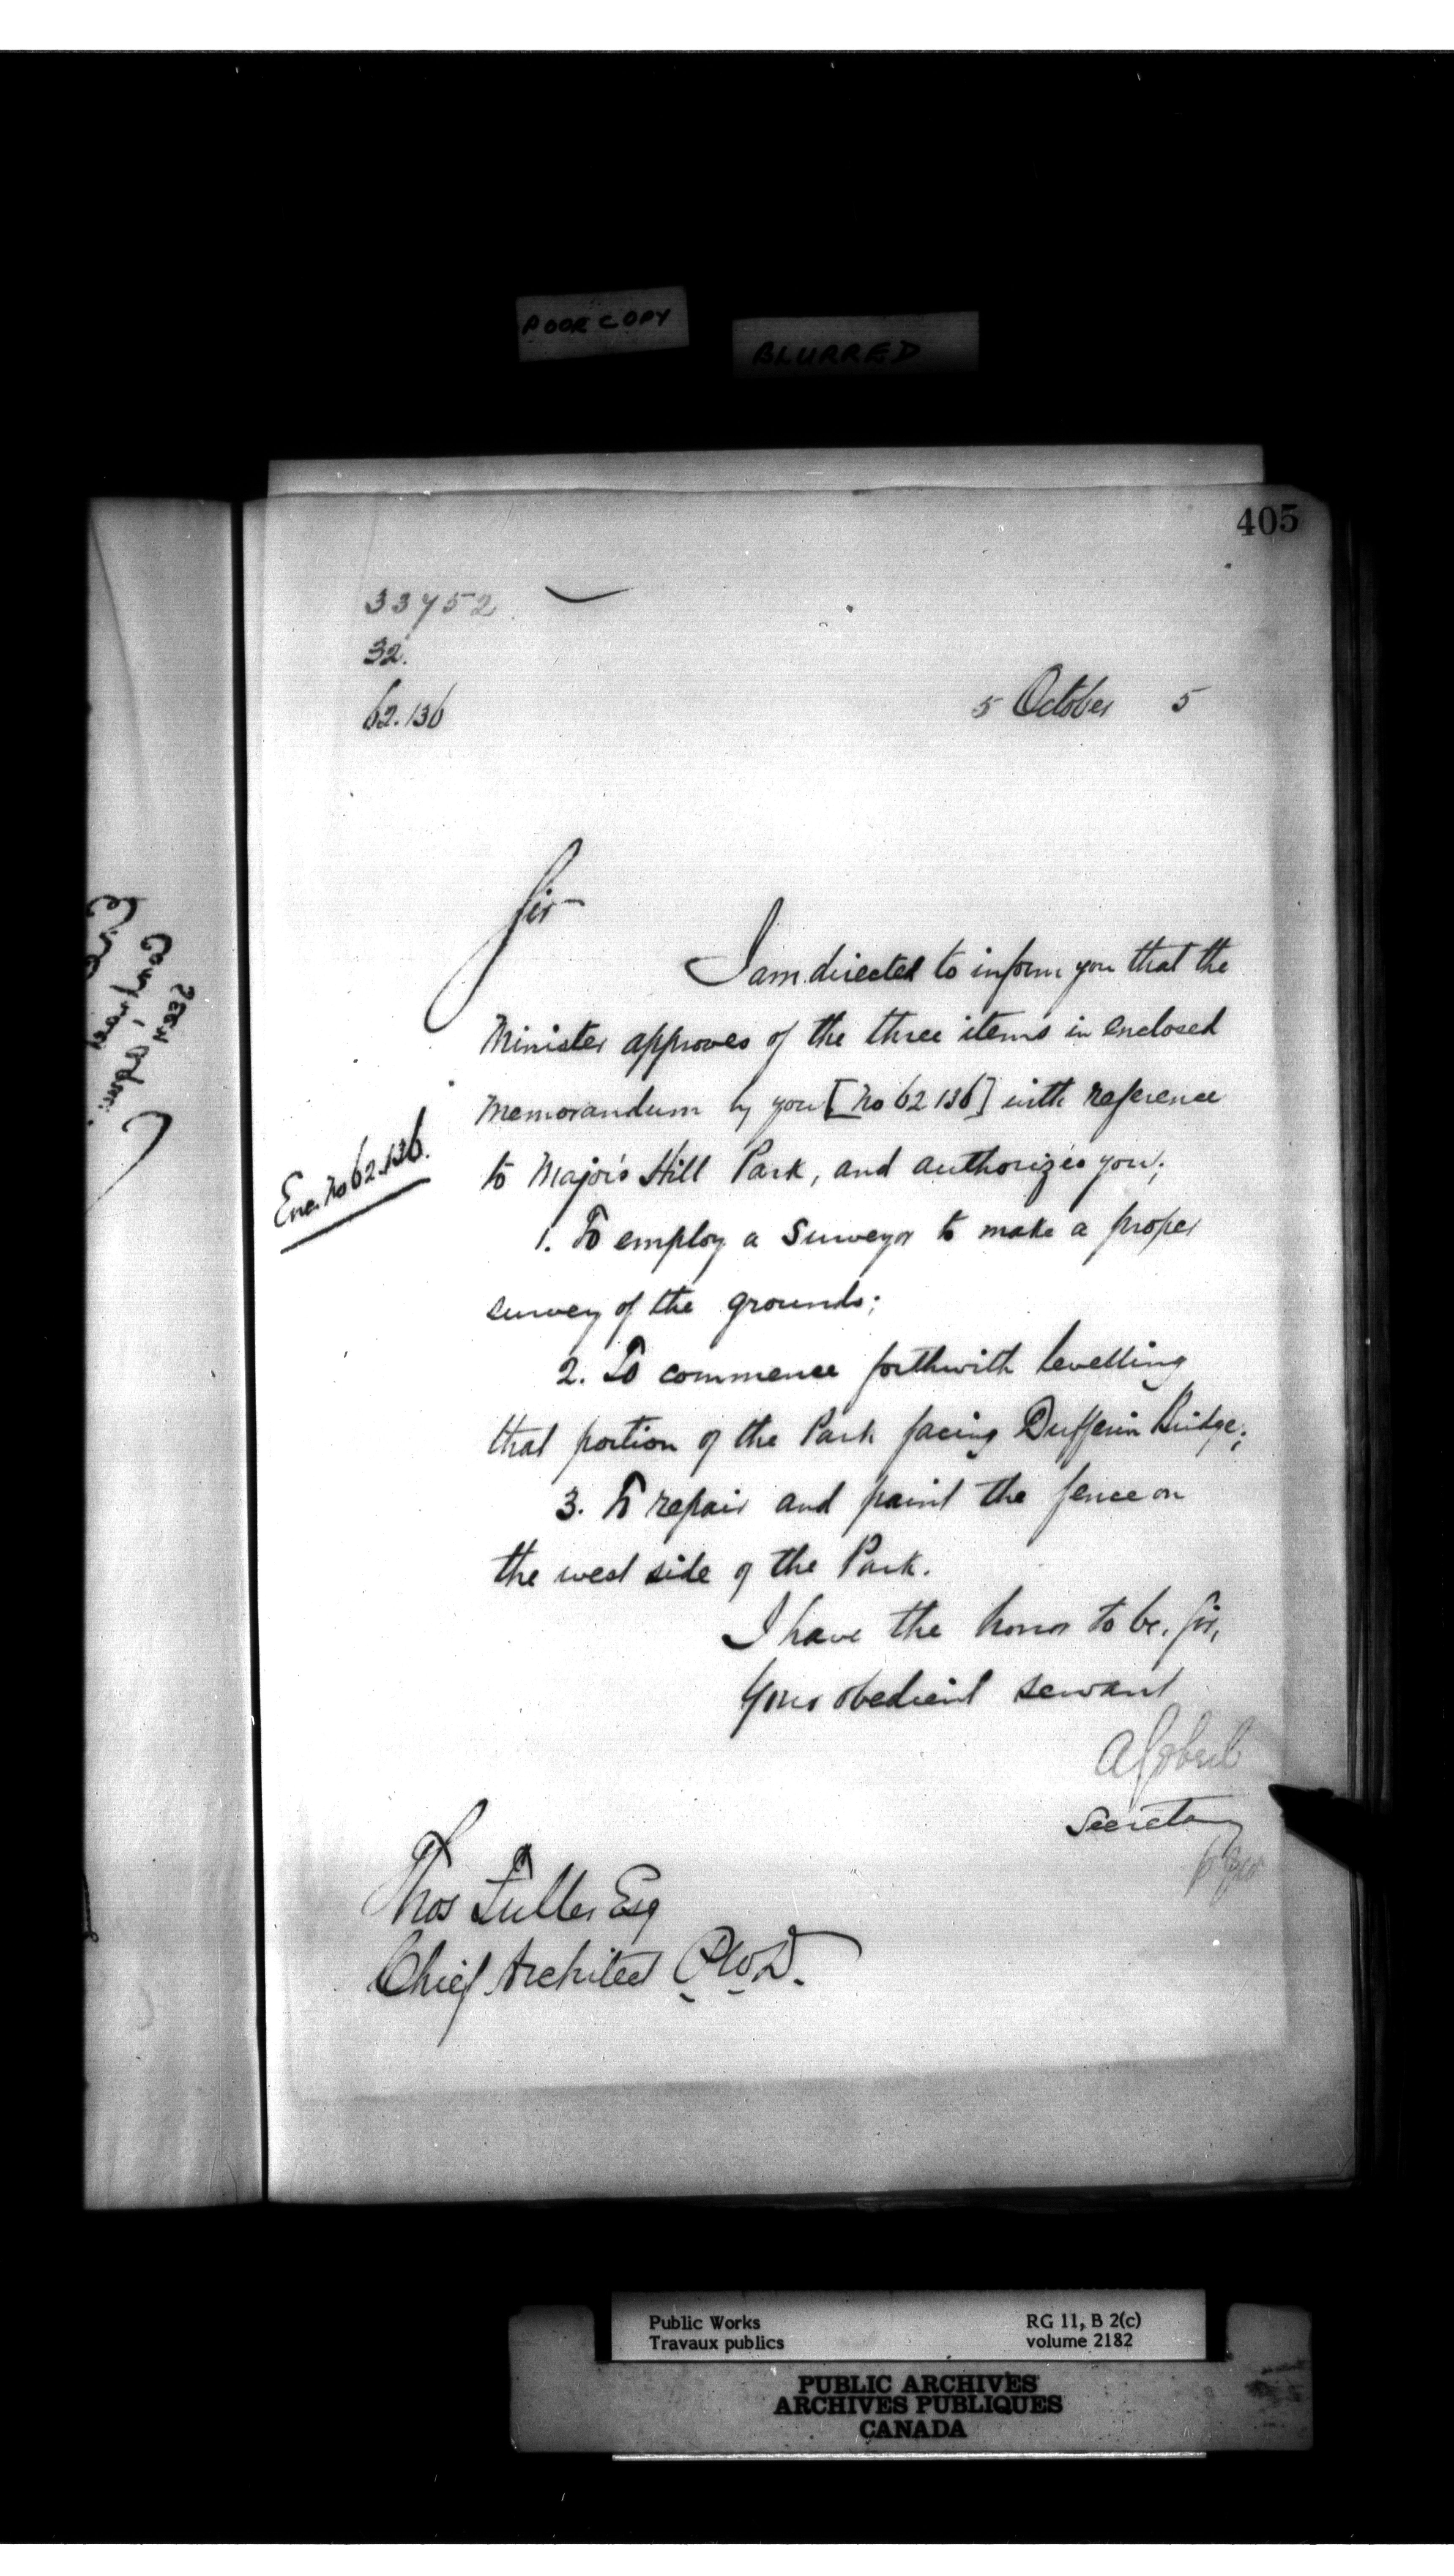 POOR COPY
BLURRED
405
33752
32.
62.136
5 October 5
Sir
I am directed to inform you that the
Minister approves of the three items in enclosed
Memorandum by you [No 62136] with reference
to Major's Hill Park, and authorizes you;
Enc. No 62.136.
1. To employ a Surveyor to make a proper
survey of the grounds;
2. To commence forthwith levelling
that portion of the Park facing Dufferin Bridge;
3. To repair and paint the fence on
the west side of the Park.
I have the honor to be, Sir,
Your obedient servant
A Gobeil
Secretary
Thos Fuller Esq
Chief Architect P.W.D.
Public Works
Travaux publics
RG 11, B 2(c)
volume 2182
PUBLIC ARCHIVES
ARCHIVES PUBLIQUES
CANADA